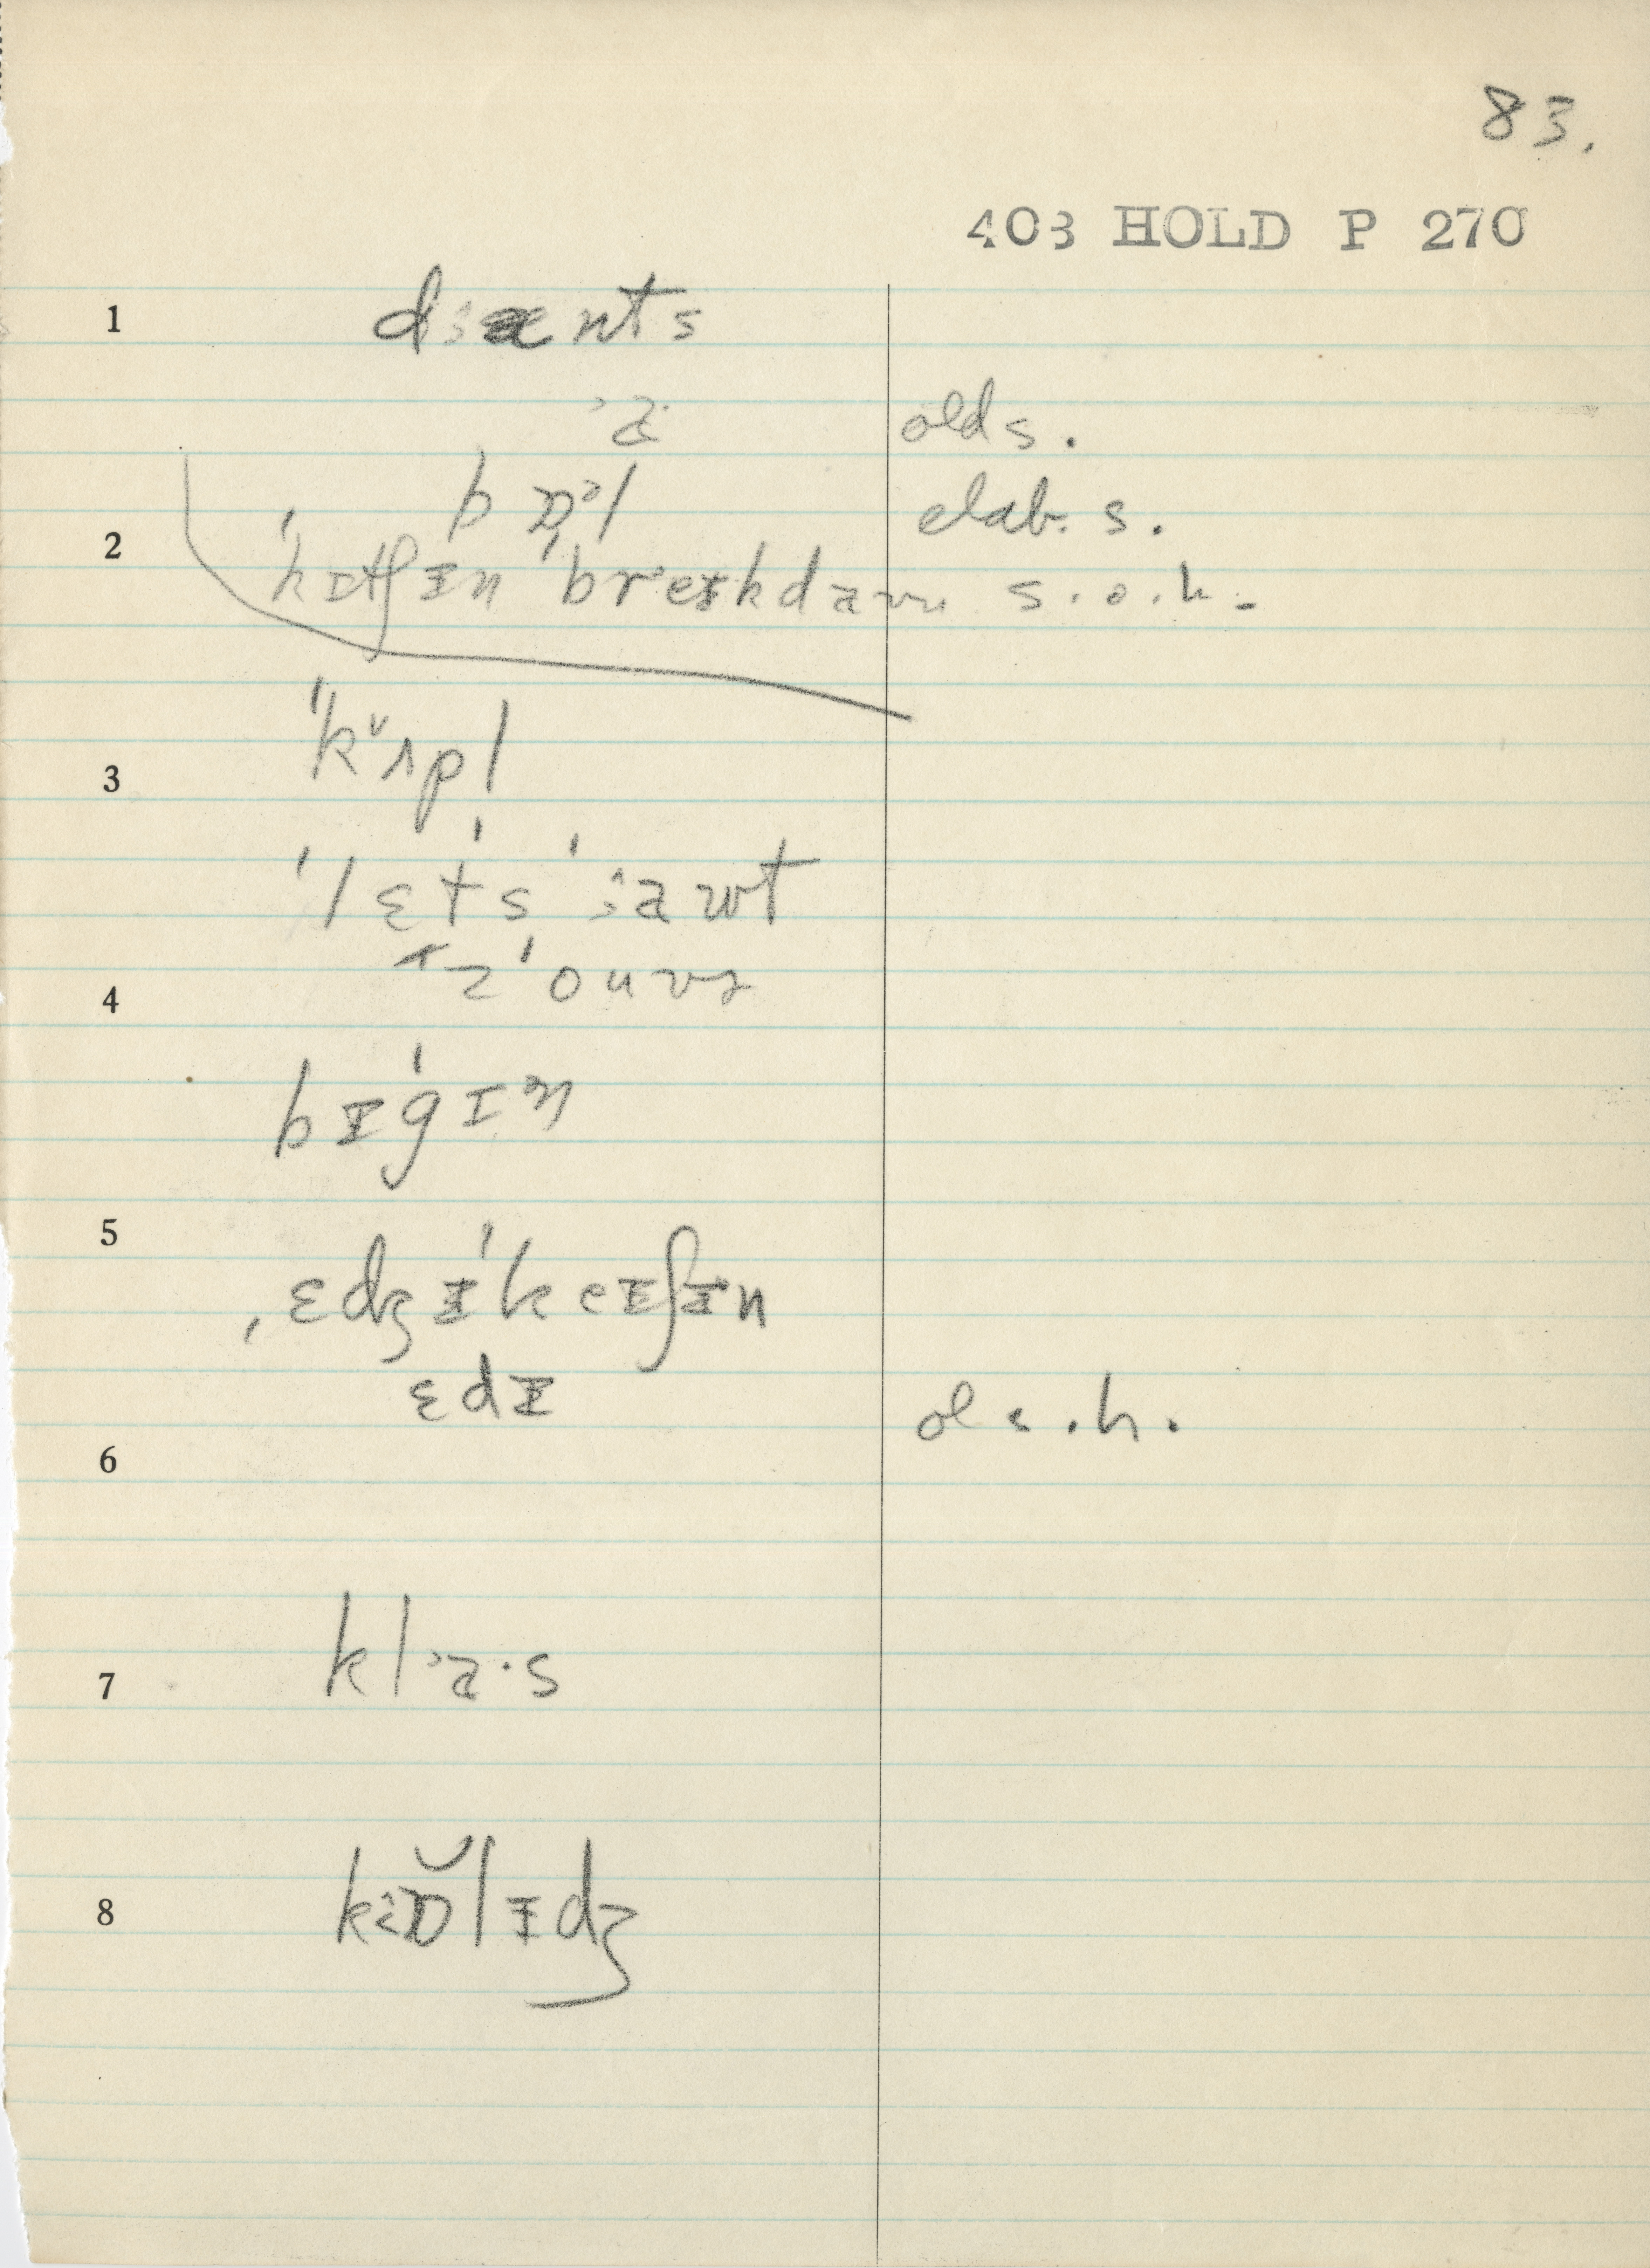 83.
403 HOLD P 270
1 dꞮænts
a olds.
bɒᵊl elab. s.
2 ˈkɪtʃᵻn ˈbreᵻkdaʊn s.o.h.
3 ˈkᵛʌpl
ˈlɛtsˈ aʊt
4 ɪzˈouvɚ
bᵻˈgɪᵊn
5 ˌɛdʒᵻˈkeᵻʃᵻn
ɛdᵻ s.h.
6
7 kl˃a·s
8 kɒ̆lᵻdʒ